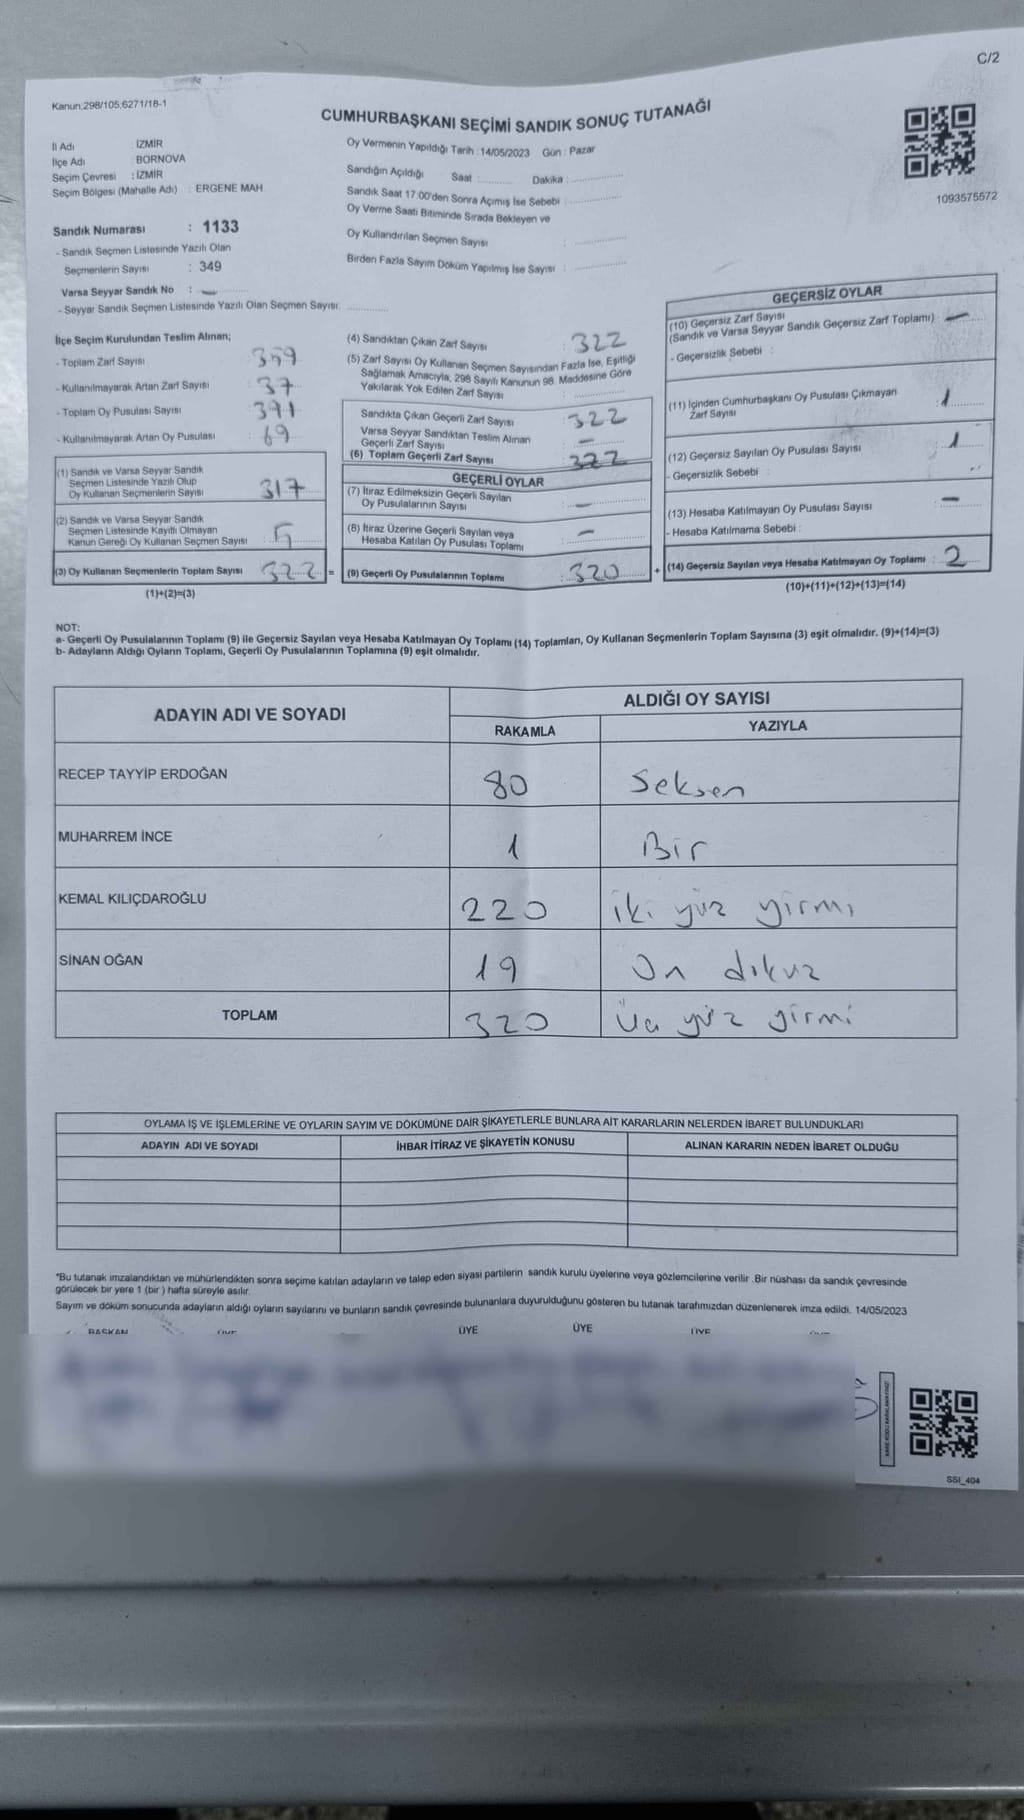 C/2
Kanun;298/105,6271/18-1
CUMHURBAŞKANI SEÇİMİ SANDIK SONUÇ TUTANAĞI
1093575572
İl Adı : İZMİR
İlçe Adı : BORNOVA
Seçim Çevresi : İZMİR
Seçim Bölgesi (Mahalle Adı) : ERGENE MAH.
Sandık Numarası : 1133
- Sandık Seçmen Listesinde Yazılı Olan
Seçmenlerin Sayısı : 349
Varsa Seyyar Sandık No : —
- Seyyar Sandık Seçmen Listesinde Yazılı Olan Seçmen Sayısı:
Oy Vermenin Yapıldığı Tarih : 14/05/2023 Gün : Pazar
Sandığın Açıldığı Saat : Dakika :
Sandık Saat 17:00'den Sonra Açımış İse Sebebi :
Oy Verme Saati Bitiminde Sırada Bekleyen ve
Oy Kullandırılan Seçmen Sayısı :
Birden Fazla Sayım Döküm Yapılmış İse Sayısı :
İlçe Seçim Kurulundan Teslim Alınan;
- Toplam Zarf Sayısı : 359
- Kullanılmayarak Artan Zarf Sayısı : 37
- Toplam Oy Pusulası Sayısı : 391
- Kullanılmayarak Artan Oy Pusulası : 69
(1) Sandık ve Varsa Seyyar Sandık
Seçmen Listesinde Yazılı Olup
Oy Kullanan Seçmenlerin Sayısı : 317
(2) Sandık ve Varsa Seyyar Sandık
Seçmen Listesinde Kayıtlı Olmayan
Kanun Gereği Oy Kullanan Seçmen Sayısı : 5
(3) Oy Kullanan Seçmenlerin Toplam Sayısı : 322 =
(1)+(2)=(3)
(4) Sandıktan Çıkan Zarf Sayısı : 322
(5) Zarf Sayısı Oy Kullanan Seçmen Sayısından Fazla İse, Eşitliği
Sağlamak Amacıyla, 298 Sayılı Kanunun 98. Maddesine Göre
Yakılarak Yok Edilen Zarf Sayısı :
Sandıkta Çıkan Geçerli Zarf Sayısı : 322
Varsa Seyyar Sandıktan Teslim Alınan
Geçerli Zarf Sayısı : —
(6) Toplam Geçerli Zarf Sayısı : 322
GEÇERLİ OYLAR
(7) İtiraz Edilmeksizin Geçerli Sayılan
Oy Pusulalarının Sayısı : —
(8) İtiraz Üzerine Geçerli Sayılan veya
Hesaba Katılan Oy Pusulası Toplamı : —
(9) Geçerli Oy Pusulalarının Toplamı : 320 +
GEÇERSİZ OYLAR
(10) Geçersiz Zarf Sayısı
(Sandık ve Varsa Seyyar Sandık Geçersiz Zarf Toplamı) : —
- Geçersizlik Sebebi :
(11) İçinden Cumhurbaşkanı Oy Pusulası Çıkmayan
Zarf Sayısı : 1
(12) Geçersiz Sayılan Oy Pusulası Sayısı : 1
- Geçersizlik Sebebi :
(13) Hesaba Katılmayan Oy Pusulası Sayısı : —
- Hesaba Katılmama Sebebi :
(14) Geçersiz Sayılan veya Hesaba Katılmayan Oy Toplamı : 2
(10)+(11)+(12)+(13)=(14)
NOT:
a- Geçerli Oy Pusulalarının Toplamı (9) ile Geçersiz Sayılan veya Hesaba Katılmayan Oy Toplamı (14) Toplamları, Oy Kullanan Seçmenlerin Toplam Sayısına (3) eşit olmalıdır. (9)+(14)=(3)
b- Adayların Aldığı Oyların Toplamı, Geçerli Oy Pusulalarının Toplamına (9) eşit olmalıdır.
ADAYIN ADI VE SOYADI
ALDIĞI OY SAYISI
RAKAMLA YAZIYLA
RECEP TAYYİP ERDOĞAN 80 Seksen
MUHARREM İNCE 1 Bir
KEMAL KILIÇDAROĞLU 220 iki yüz yirmi
SİNAN OĞAN 19 On dokuz
TOPLAM 320 Üç yüz yirmi
OYLAMA İŞ VE İŞLEMLERİNE VE OYLARIN SAYIM VE DÖKÜMÜNE DAİR ŞİKAYETLERLE BUNLARA AİT KARARLARIN NELERDEN İBARET BULUNDUKLARI
ADAYIN ADI VE SOYADI İHBAR İTİRAZ VE ŞİKAYETİN KONUSU ALINAN KARARIN NEDEN İBARET OLDUĞU
*Bu tutanak imzalandıktan ve mühürlendikten sonra seçime katılan adayların ve talep eden siyasi partilerin sandık kurulu üyelerine veya gözlemcilerine verilir .Bir nüshası da sandık çevresinde
görülecek bir yere 1 (bir ) hafta süreyle asılır.
Sayım ve döküm sonucunda adayların aldığı oyların sayılarını ve bunların sandık çevresinde bulunanlara duyurulduğunu gösteren bu tutanak tarafımızdan düzenlenerek imza edildi. 14/05/2023
BAŞKAN ÜYE ÜYE ÜYE ÜYE
SSI_404